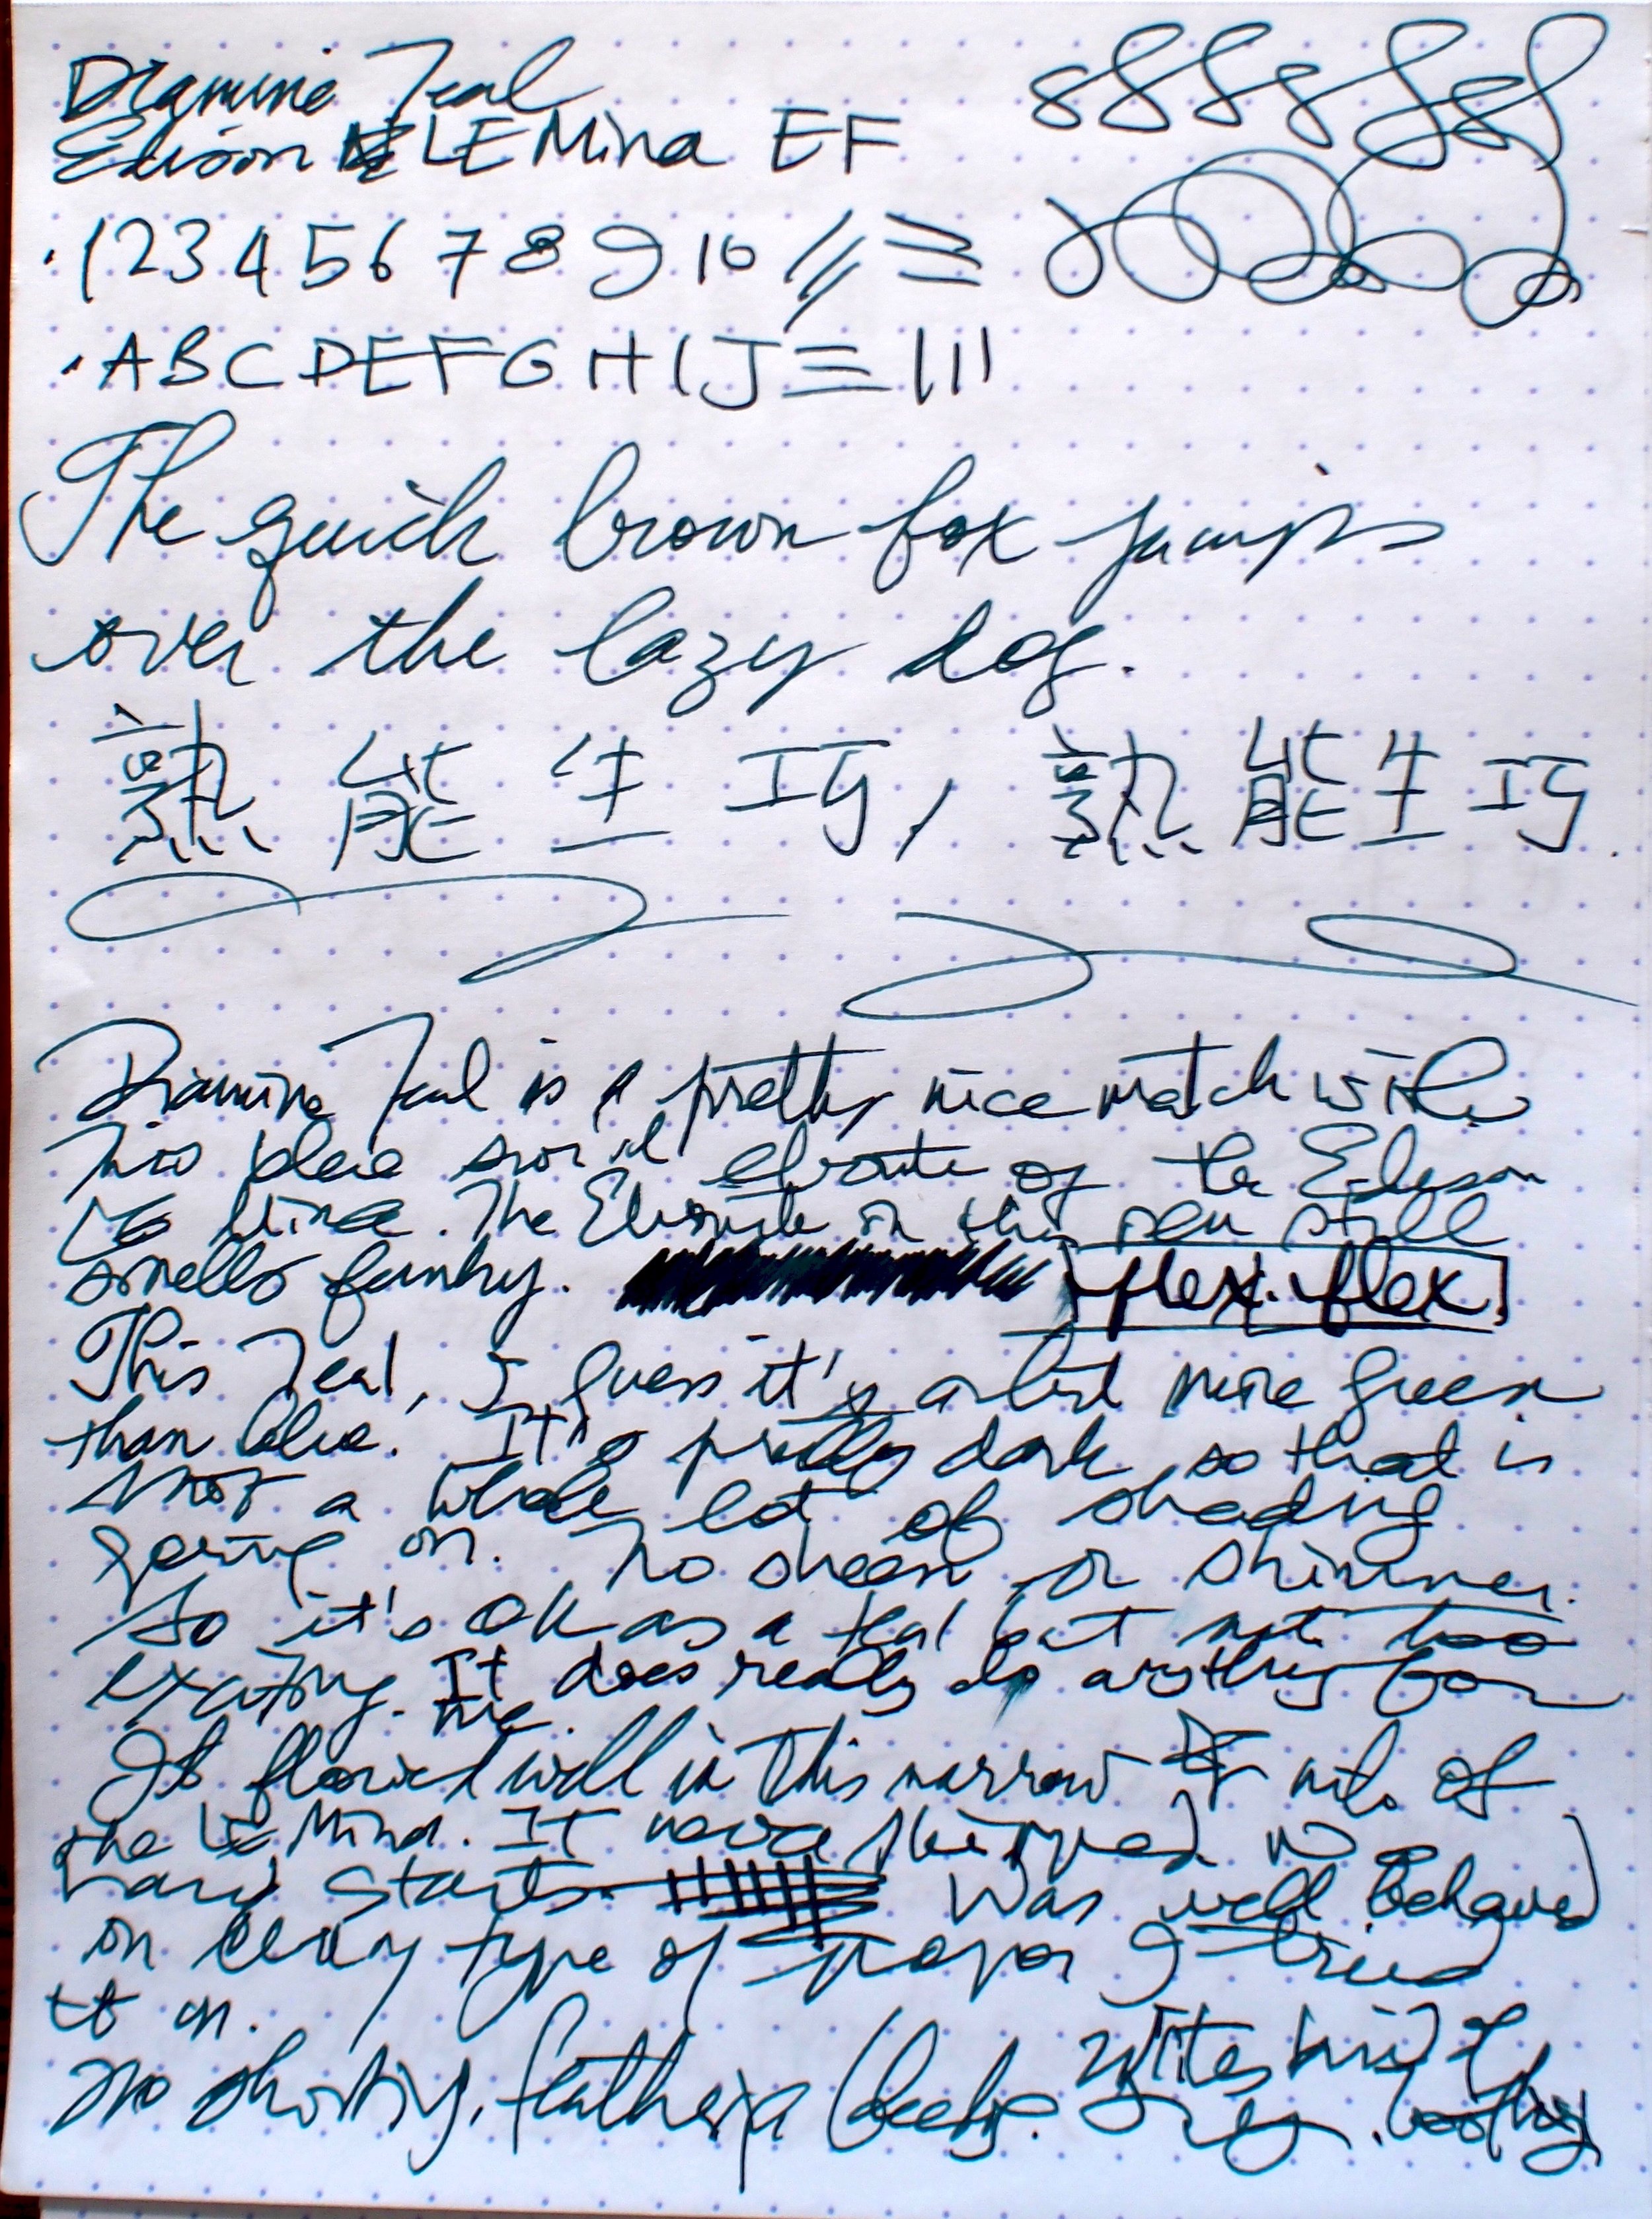 Diamine Teal
Edison LE Mina EF
1 2 3 4 5 6 7 8 9 10
A B C D E F G H I J
The quick brown fox jumps
over the lazy dog.
熟能生巧, 熟能生巧.
Diamine Teal is a pretty nice match with
this blue swirl ebonite of the Edison
LE Mina. The Ebonite in this pen still
smells funky. flex. flex.
This Teal, I guess it's a bit more green
than blue. It's pretty dark so that is
not a whole lot of shading
going on. No sheen or shimmer.
So it's OK as a teal but not too
exciting. It does really do anything for
me.
It flowed well in this narrow EF nib of
the LE Mina. It never skipped no
hard starts. Was well behaved
on every type of paper I tried
it on.
No ghosting, feathering, bleeding. Writes